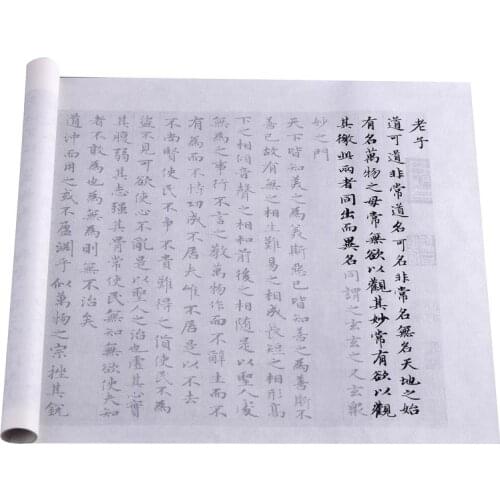 老子
道可道非常道名可名非常名無名天地之始
有名萬物之母常無欲以觀其妙常有欲以觀
其徼此兩者同出而異名同謂之玄玄之又玄眾
妙之門
天下皆知美之為美斯惡已皆知善之為善斯不
善已故有無之相生難易之相成長短之相形高
下之相傾音聲之相和前後之相隨是以聖人處
無為之事行不言之教萬物作而不辭生而不
有為而不恃功成不居夫唯不居是以不去
不尚賢使民不爭不貴難得之貨使民不為
盜不見可欲使心不亂是以聖人之治也虛其心實
其腹弱其志強其骨常使民無知無欲使夫知
者不敢為也為無為則無不治矣
道沖而用之或不盈淵乎似萬物之宗挫其銳